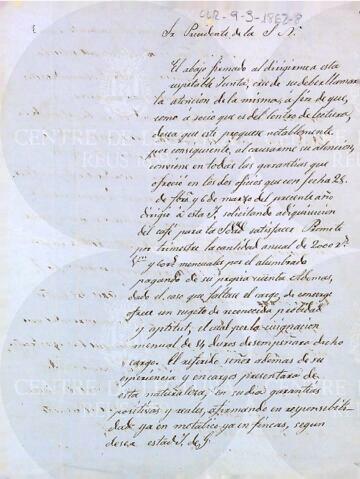 CLR-9-3-1862-8
Sr Presidente de la S. N.
El abajo firmado al dirigirme a esta
respetable Junta, cree de su deber llamar
la atencion de la misma, a fin de que,
como a socio que es del Centro de Lectura,
desea que este progrese notablemente
por consiguiente, al causarme su atencion,
conviene en todas las garantias que
ofreció en los dos oficios que con fecha 28
de fbro y 6 de marzo del presente año
dirigió a esta J. solicitando adquisicion
del café para la Sdad satisfacer Promete
por trimestre la cantidad anual de 2000 rs
y mensuales por el alumbrado
pagando de su propia cuenta Ademas,
dado el caso que faltase el cargo, de conserge
ofrece un sugeto de reconocida probidad
y aptitut; el cual por la consignacion
mensual de 14 duros desempeñara dicho
cargo. El referido señor ademas de su
esperiencia y encargos presentara de
esta naturaleza, en su dia garantias
positivas y reales, afirmando en responsabili-
dad ya en metalico ya en fincas, segun
desea esta J. de G.
CENTRE DE LECTURA
REUS